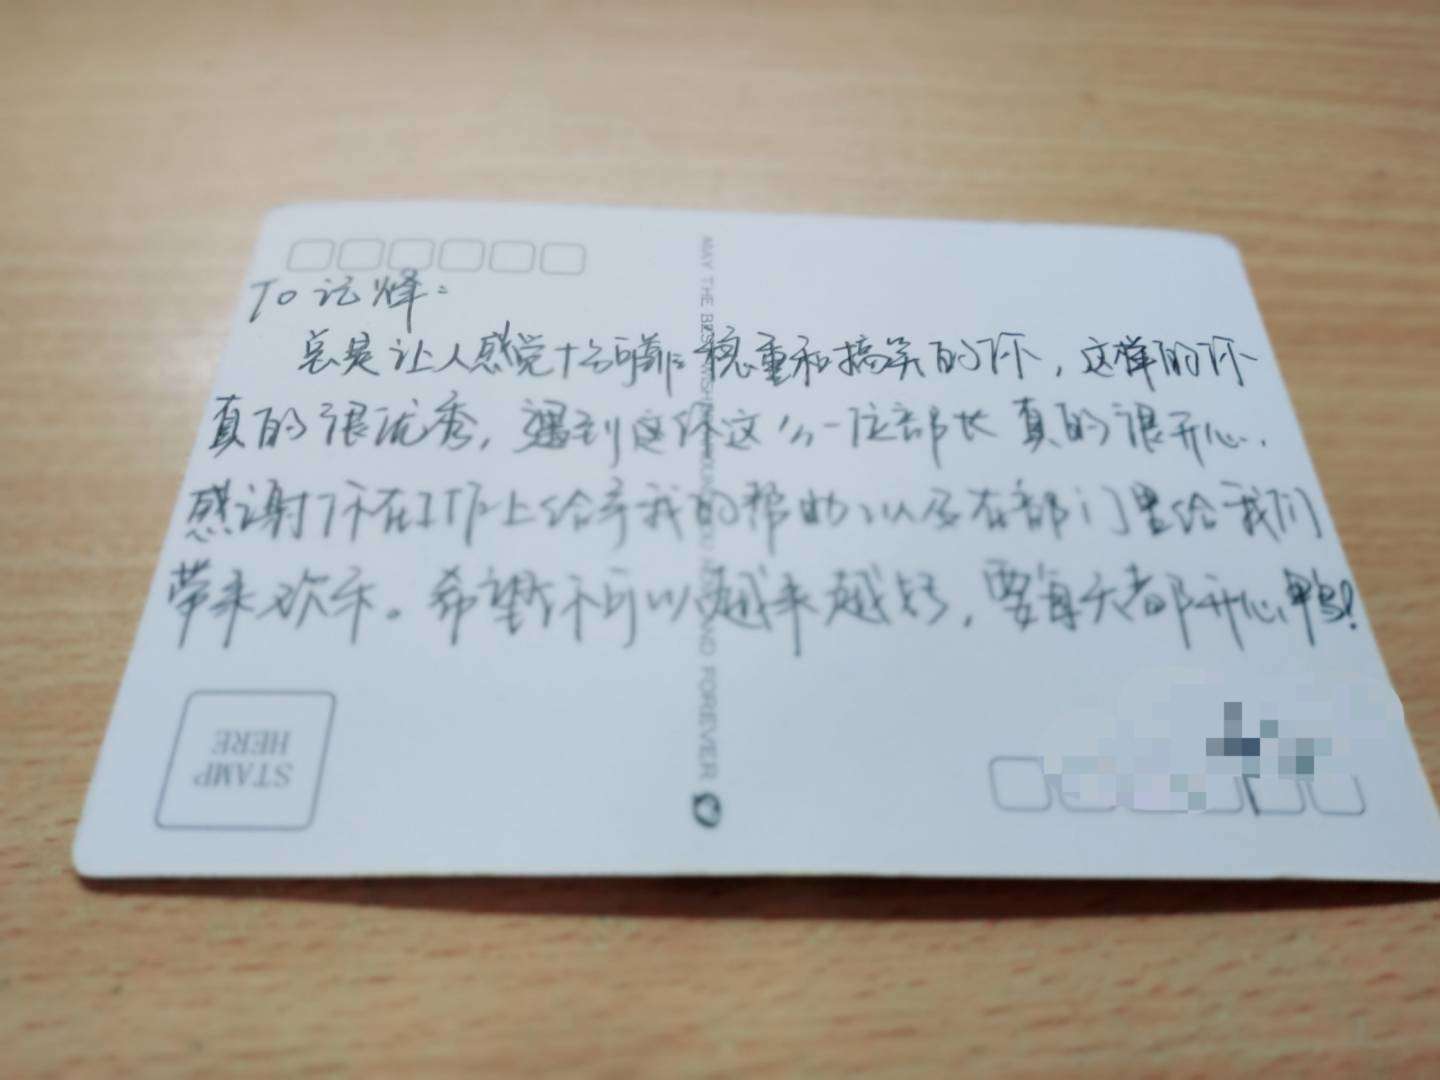 To 记烽：
总是让人感觉十分可靠、稳重和搞笑的你，这样的你
真的很优秀，遇到这你这么一位部长真的很开心，
感谢你在工作上给予我的帮助以及在部门里给我们
带来欢乐。希望你可以越来越好，要每天都开心鸭！
MAY THE BEST WISH YOU AND FOREVER
STAMP
HERE